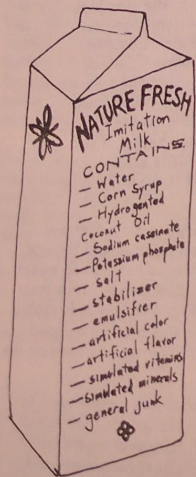 NATURE FRESH
Imitation
Milk
CONTAINS:
— Water
— Corn Syrup
— Hydrogented
Coconut Oil
— Sodium caseinate
— Potassium phosphate
— salt
— stabilizer
— emulsifier
— artificial color
— artificial flavor
— simulated vitamins
— simulated minerals
— general junk